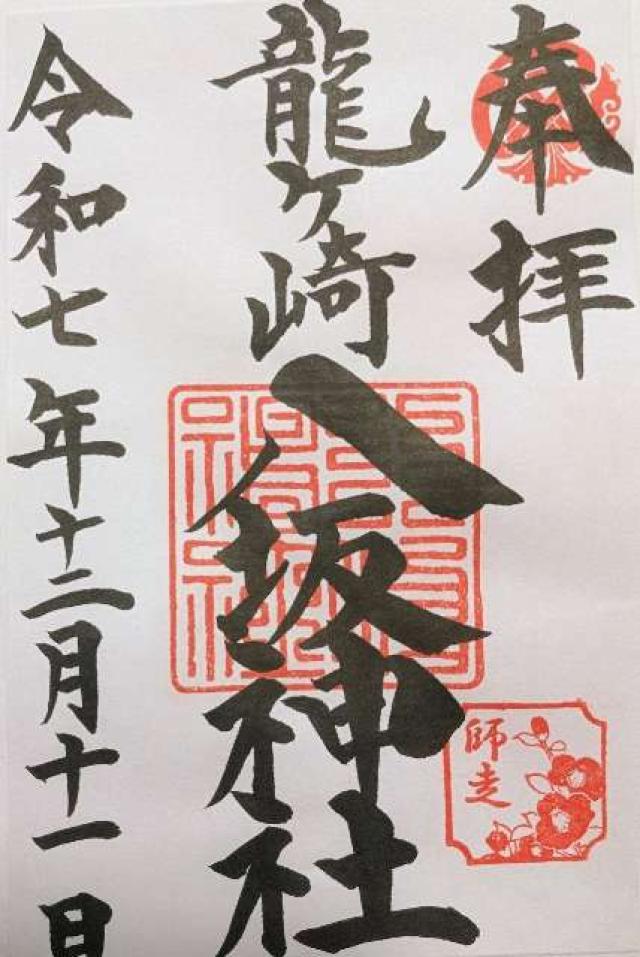 奉拝
龍ケ崎
八坂神社
師走
令和七年十二月十一日